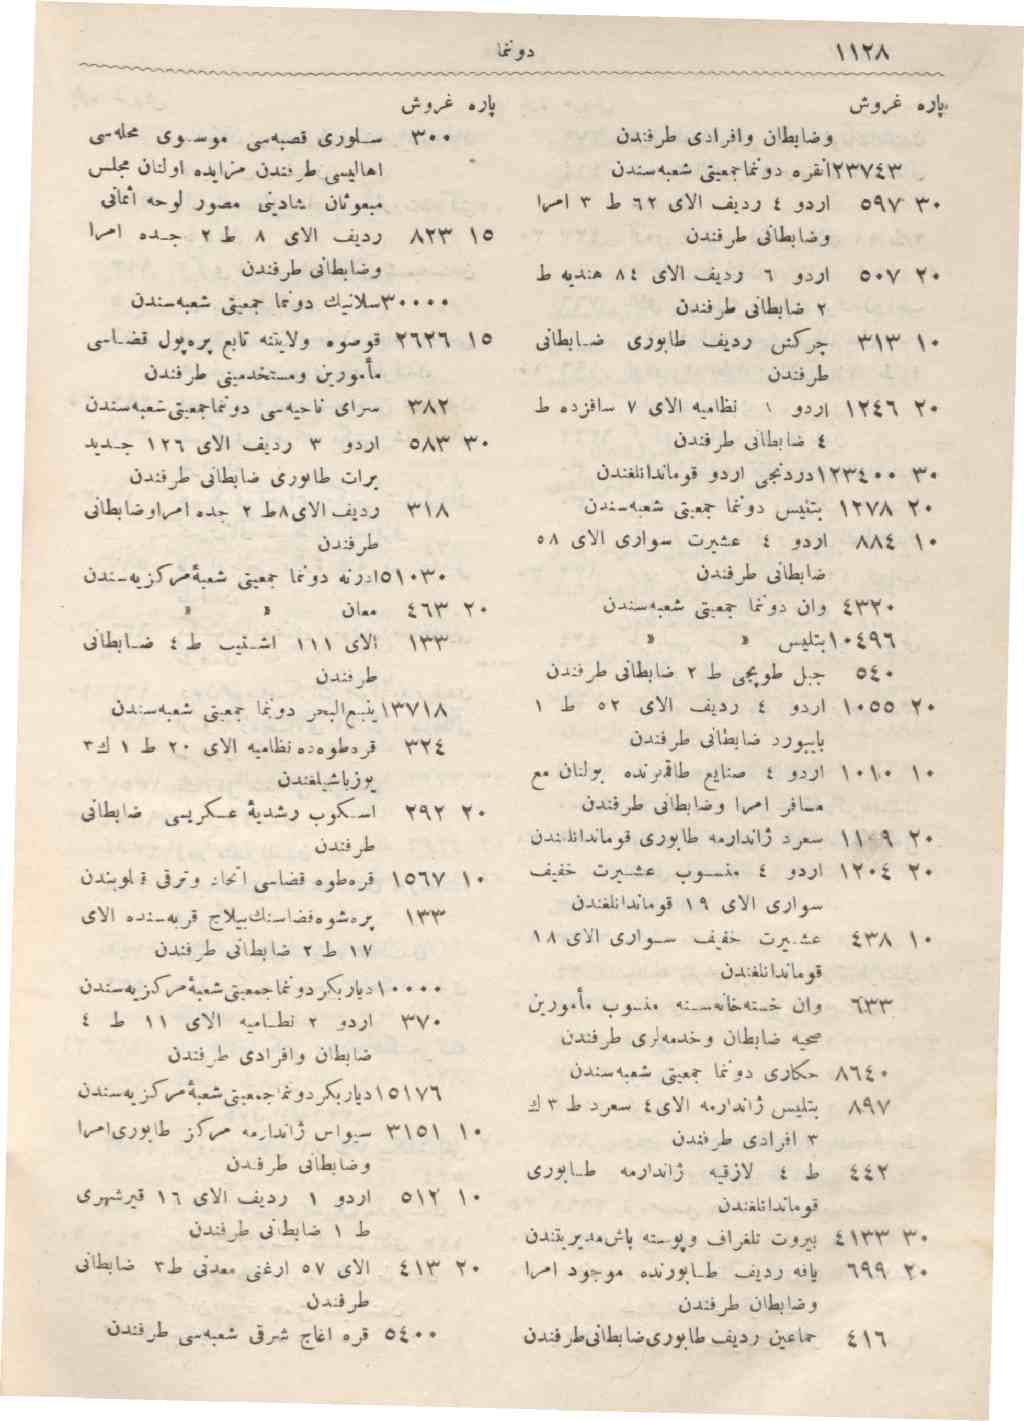 ١١٢٨
دونما
پاره غروش
وضابطان وافرادی طرفندن
٢٣٧٤٣ انقره دونما جمعیتی شعبه‌سندن
٣٠ ٥٩٧ اردو ٤ ردیف الای ٦٢ ط ٣ امرا
وضابطانی طرفندن
٢٠ ٥٠٧ اردو ٦ ردیف الای ٨٤ هندیه ط
٢ ضابطانی طرفندن
١٠ ٣١٣ چرکش ردیف طابوری ضابطانی
طرفندن
٢٠ ١٢٤٦ اردو ١ نظامیه الای ٧ ساقزده ط
٤ ضابطانی طرفندن
٣٠ ١٢٣٤٠٠ دردنجی اردو قوماندانلغندن
٢٠ ١٢٧٨ بتلیس دونما جمعیتی شعبه‌سندن
١٠ ٨٨٤ اردو ٤ عشیرت سواری الای ٥٨
ضابطانی طرفندن
٤٣٢٠ وان دونما جمعیتی شعبه‌سندن
١٠٤٩٦ بتلیس » »
٥٤٠ جبل طوپجی ط ٢ ضابطانی طرفندن
٢٠ ١٠٥٥ اردو ٤ ردیف الای ٥٢ ط ١
بایبورد ضابطانی طرفندن
١٠ ١٠١٠ اردو ٤ صنایع طاقمرنده بولنان مع
مسافر امرا وضابطانی طرفندن
٢٠ ١١٠٩ سعرد ژاندارمه طابوری قوماندانلغندن
٢٠ ١٢٠٤ اردو ٤ منسوب عشیرت خفیف
سواری الای ١٩ قوماندانلغندن
١٠ ٤٣٨ عشیرت خفیف سواری الای ١٨
قوماندانلغندن
٦٣٣ وان خسته‌خانه‌سنه منسوب مأمورین
صحیه ضابطان وخدمه‌لری طرفندن
٨٦٤٠ حکاری دونما جمعیتی شعبه‌سندن
٨٩٧ بتلیس ژاندارمه الای ٤ سعرد ط ٣ ك
٣ افرادی طرفندن
٤٤٢ ط ٤ لازقیه ژاندارمه طابوری
قوماندانلغندن
٣٠ ٤١٣٣ بیروت تلغراف وپوسته باش‌مدیریتندن
٢٠ ٦٩٩ یافه ردیف طابورنده موجود امرا
وضابطان طرفندن
٤١٦ جماعین ردیف طابوری ضابطانی طرفندن
پاره غروش
٣٠٠ سلوری قصبه‌سی موسوی محله‌سی
اهالیسی طرفندن مزایده اولنان مجلس
مبعوثان شادینی مصور لوحه اثمانی
١٥ ٨٢٣ ردیف الای ٨ ط ٢ جده امرا
وضابطانی طرفندن
٣٠٠٠٠ سلانیك دونما جمعیتی شعبه‌سندن
١٥ ٢٦٢٦ قوصوه ولایتنه تابع پره‌پول قضاسی
مأمورین ومستخدمینی طرفندن
٣٨٢ سرای ناحیه‌سی دونما جمعیتی شعبه‌سندن
٣٠ ٥٨٣ اردو ٣ ردیف الای ١٢٦ جدید
برات طابوری ضابطانی طرفندن
٣١٨ ردیف الای ٨ ط ٢ جده امرا وضابطانی
طرفندن
٥١٠٣٠ ادرنه دونما جمعیتی شعبهٔ مرکزیه‌سندن
٢٠ ٤٦٣ معان » »
١٣٣ الای ١١١ اشتیب ط ٤ ضابطانی
طرفندن
١٣٧١٨ ینبع‌البحر دونما جمعیتی شعبه‌سندن
٣٢٤ قره‌طوه‌ده نظامیه الای ٢٠ ط ١ ك ٣
یوزباشیلغندن
٢٠ ٢٩٢ اسکوب رشدیهٔ عسکریسی ضابطانی
طرفندن
١٠ ١٥٦٧ قره‌طوه قضاسی اتحاد وترقی قلوبندن
١٣٣ پره‌شوه قضاسنك بیلاج قریه‌سنده الای
١٧ ط ٢ ضابطانی طرفندن
١٠٠٠٠ دیاربکر دونما جمعیتی شعبهٔ مرکزیه‌سندن
٣٧٠ اردو ٢ نظامیه الای ١١ ط ٤
ضابطان وافرادی طرفندن
١٥١٧٦ دیاربکر دونما جمعیتی شعبهٔ مرکزیه‌سندن
١٠ ٣١٥١ سیواس ژاندارمه مرکز طابوری امرا
وضابطانی طرفندن
١٠ ٥١٢ اردو ١ ردیف الای ١٦ قیرشهری
ط ١ ضابطانی طرفندن
٢٠ ٤١٣ الای ٥٧ ارغنی معدنی ط ٣ ضابطانی
طرفندن
٥٤٠٠ قره اغاج شرقی شعبه‌سی طرفندن